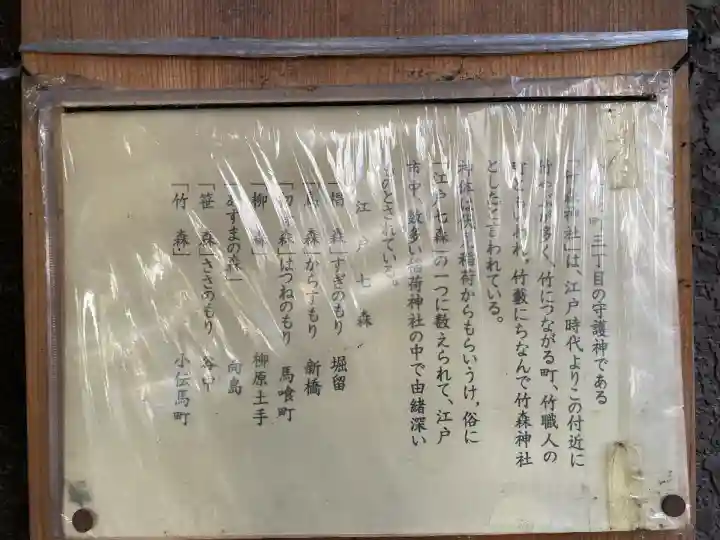 町三丁目の守護神である
「竹森神社」は、江戸時代よりこの付近に
竹やぶが多く、竹につながる町、竹職人の
町ともいわれ、竹藪にちなんで竹森神社
としたといわれている。
神体は 稲荷からもらいうけ、俗に
「江戸七森」の一つに数えられて、江戸
市中、数多い稲荷神社の中で由緒深い
ものとされている。
江戸七森
「椙森」すぎのもり 堀留
「烏森」からすもり 新橋
「初音森」はつねのもり 馬喰町
「柳森」 柳原土手
「あずまの森」 向島
「笹森」ささのもり 谷中
「竹森」 小伝馬町